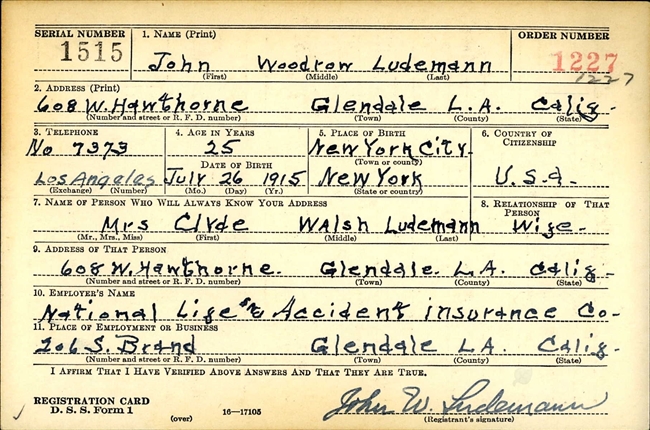 SERIAL NUMBER 1. NAME (Print) ORDER NUMBER
1515 John Woodrow Ludemann 1227
(First) (Middle) (Last) 1227
2. ADDRESS (Print)
608 W. Hawthorne Glendale L.A. Calif-
(Number and street or R. F. D. number) (Town) (County) (State)
3. TELEPHONE 4. AGE IN YEARS 5. PLACE OF BIRTH 6. COUNTRY OF CITIZENSHIP
No 7373 25 New York City
DATE OF BIRTH (Town or county)
Los Angeles July 26 1915 New York U.S.A.
(Exchange) (Number) (Mo.) (Day) (Yr.) (State or country)
7. NAME OF PERSON WHO WILL ALWAYS KNOW YOUR ADDRESS 8. RELATIONSHIP OF THAT PERSON
Mrs Clyde Walsh Ludemann Wife-
(Mr., Mrs., Miss) (First) (Middle) (Last)
9. ADDRESS OF THAT PERSON
608 W. Hawthorne. Glendale. L.A. Calif-
(Number and street or R. F. D. number) (Town) (County) (State)
10. EMPLOYER'S NAME
National Life and Accident insurance Co-
11. PLACE OF EMPLOYMENT OR BUSINESS
206 S. Brand Glendale LA. Calif-
(Number and street or R. F. D. number) (Town) (County) (State)
I AFFIRM THAT I HAVE VERIFIED ABOVE ANSWERS AND THAT THEY ARE TRUE.
REGISTRATION CARD
D. S. S. Form 1 (over) 16—17105 John W. Ludemann
(Registrant's signature)